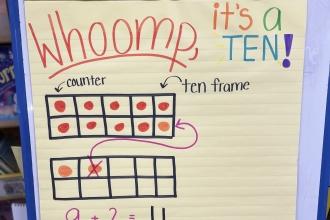 Whoomp, it's a
TEN!
counter
ten frame
9 + 2 = 11